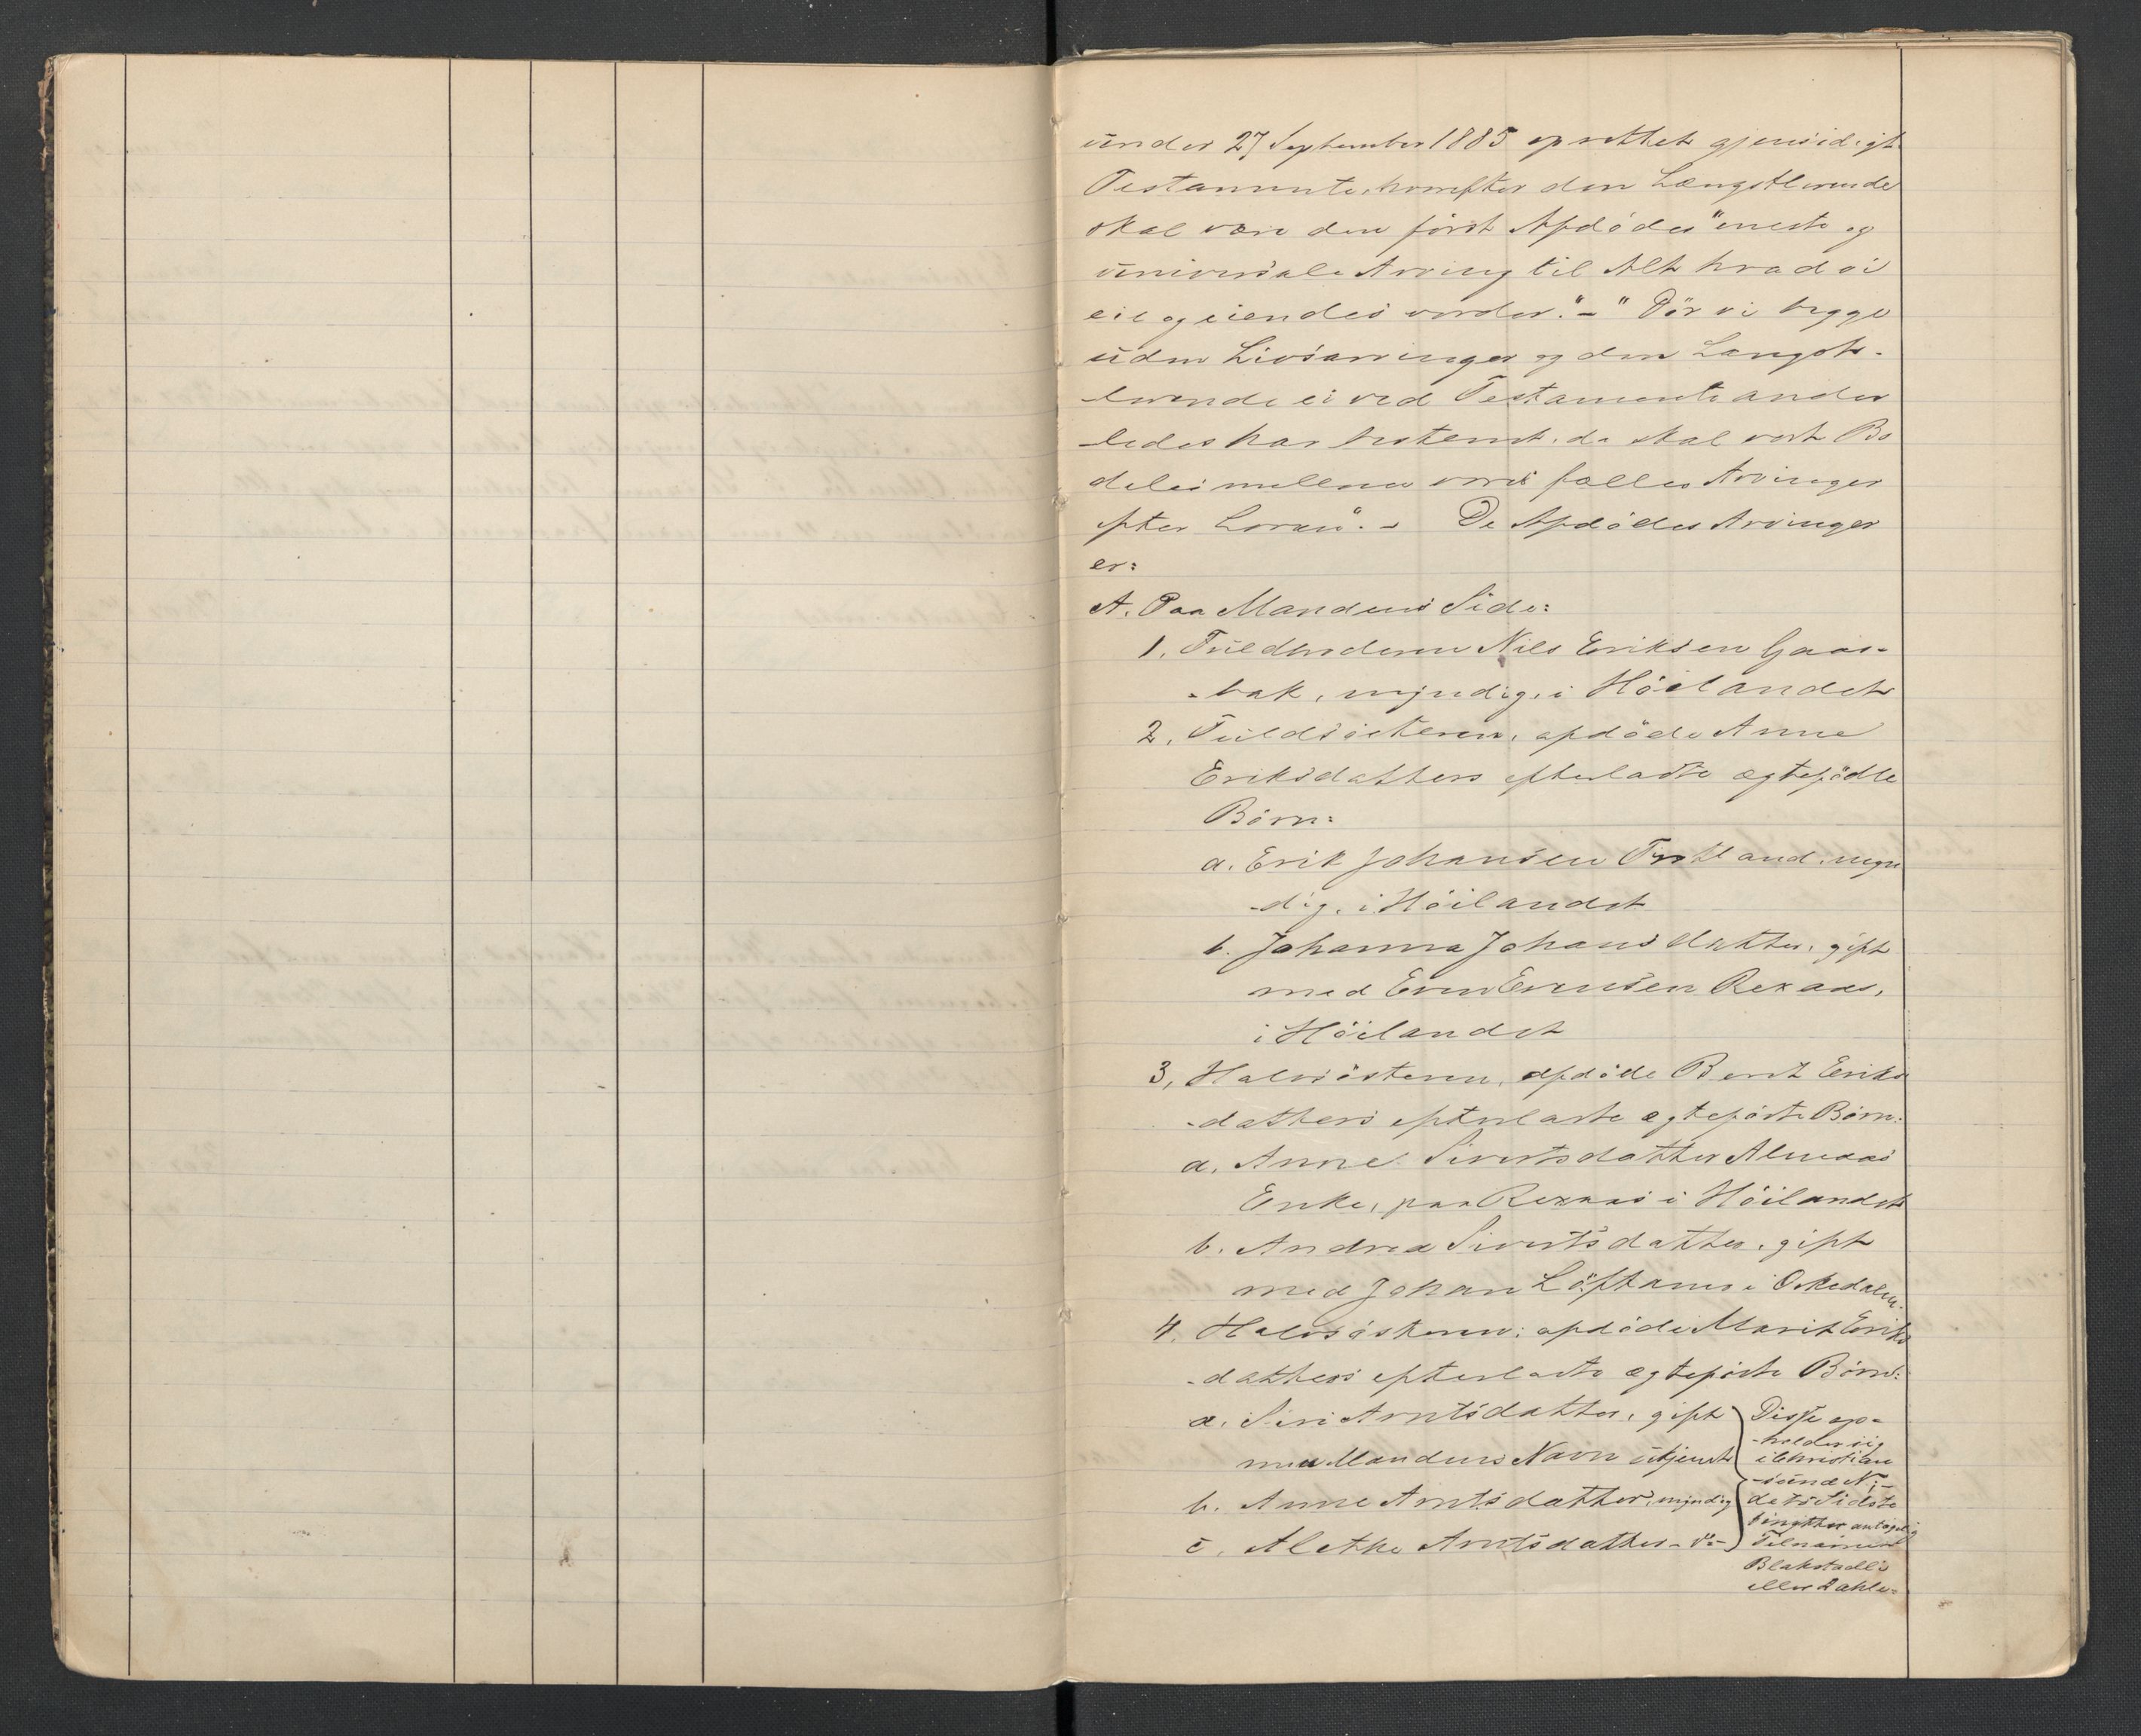 under 27 September 1885 oprettet gjensidigt
Testamente, hvorefter den Længstlevende
skal være den først Afdødes "eneste og
universale Arving til Alt hvad vi
eie og eiendes vorder." - "Dør vi begge
uden Livsarvinger og den Længst-
-levende ei ved Testamente ander
-ledes har bestemt, da skal vort Bo
deles mellem vore fælles Arvinger
efter Loven". - De Afdødes Arvinger
er:
A. Paa Mandens Side:
1. Fuldbroderen Nils Eriksen Gaas-
-bak, myndig, i Höilandet
2. Fuldsösteren, afdöde Anne
Eriksdatters efterladte ægtefödte
Börn:
a. Erik Johansen myn
-dig, i Höilandet
b. Johanna Johansdatter, gift
med Even Evensen Rexaas,
i Höilandet
3, Halvsösteren, afdöde Berit Eriks
-datters efterladte ægtefödte Börn:
a. Anne Sivertsdatter Almaas
Enke, paa Rexaas i Höilandet
b. Andrea Sivertsdatter, gift
med Johan Löftamo i Orkedalen.
4. Halvsösteren, afdöde Marit Eriks
-datters efterladte ægtefödte Börn:
a. Siri Arntsdatter, gift
men Mandens Navn ukjendt
b. Anne Arntsdatter, myndig
c. Alethe Arntsdatter - do -
Disse op-
-holder sig
i Christian
-sund N,-
de to Sidste
benytter antagelig
Tilnavnet
Blakstadli
eller Dahle-